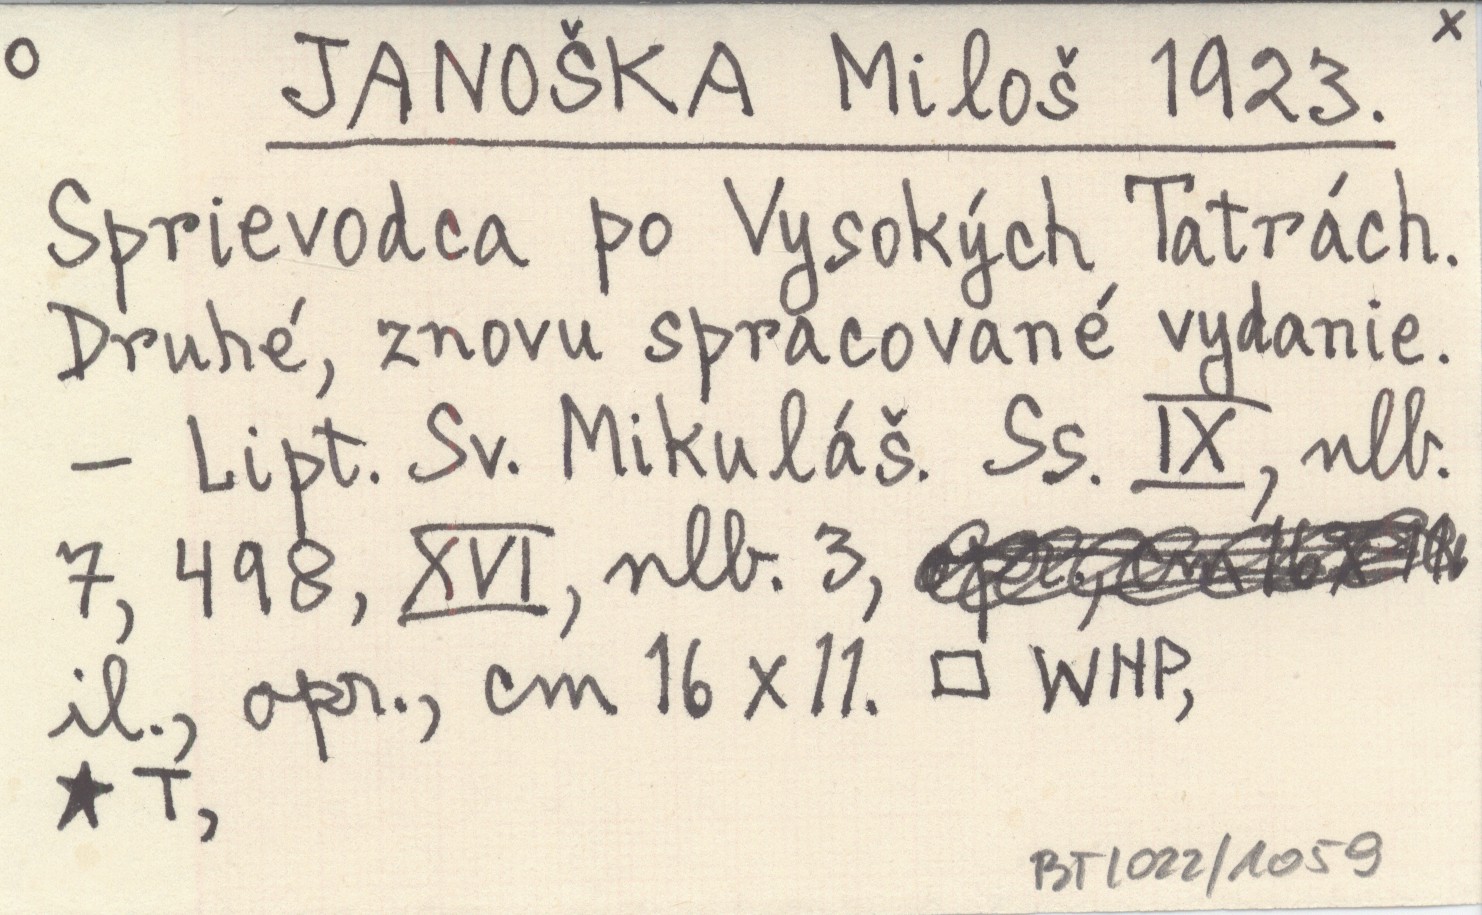 o x
JANOŠKA Miloš 1923.
Sprievodca po Vysokých Tatrách.
Druhé, znovu spracované vydanie.
– Lipt. Sv. Mikuláš. Ss. IX, nlb.
7, 498, XVI, nlb. 3,
il., opr., cm 16 x 11. □ WHP,
★ T,
BT/022/1059